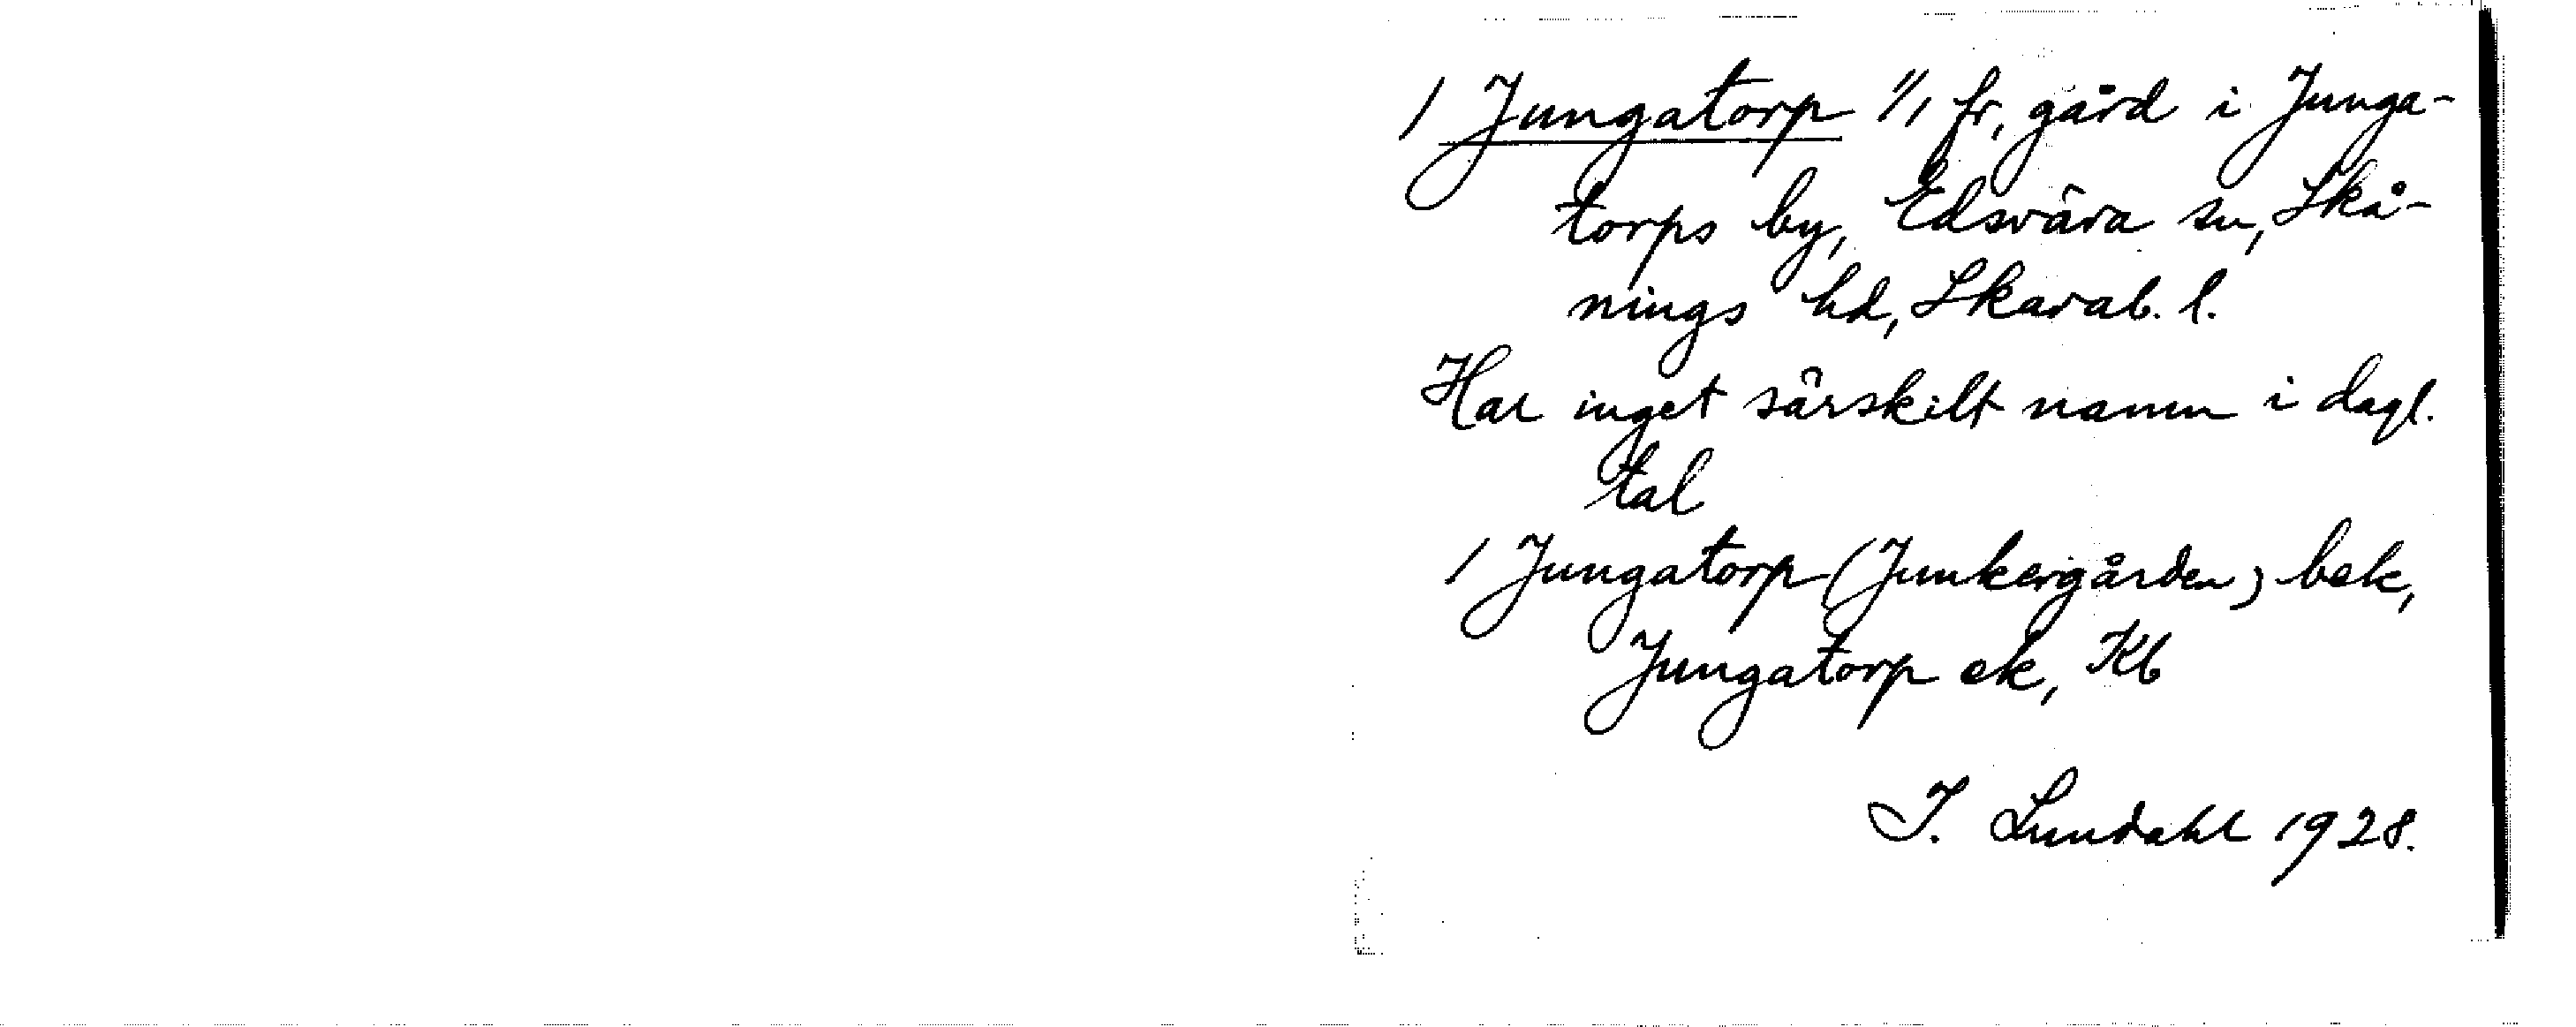 1 Jungatorp 1/1 fr, gård i Junga-
torps by, Edsvära sn, Skå-
nings hd, Skarab. l.
Har inget särskilt namn i dagl.
tal
1 Jungatorp (Junkergården) bek,
Jungatorp ek, Kb
I. Lundahl 1928.